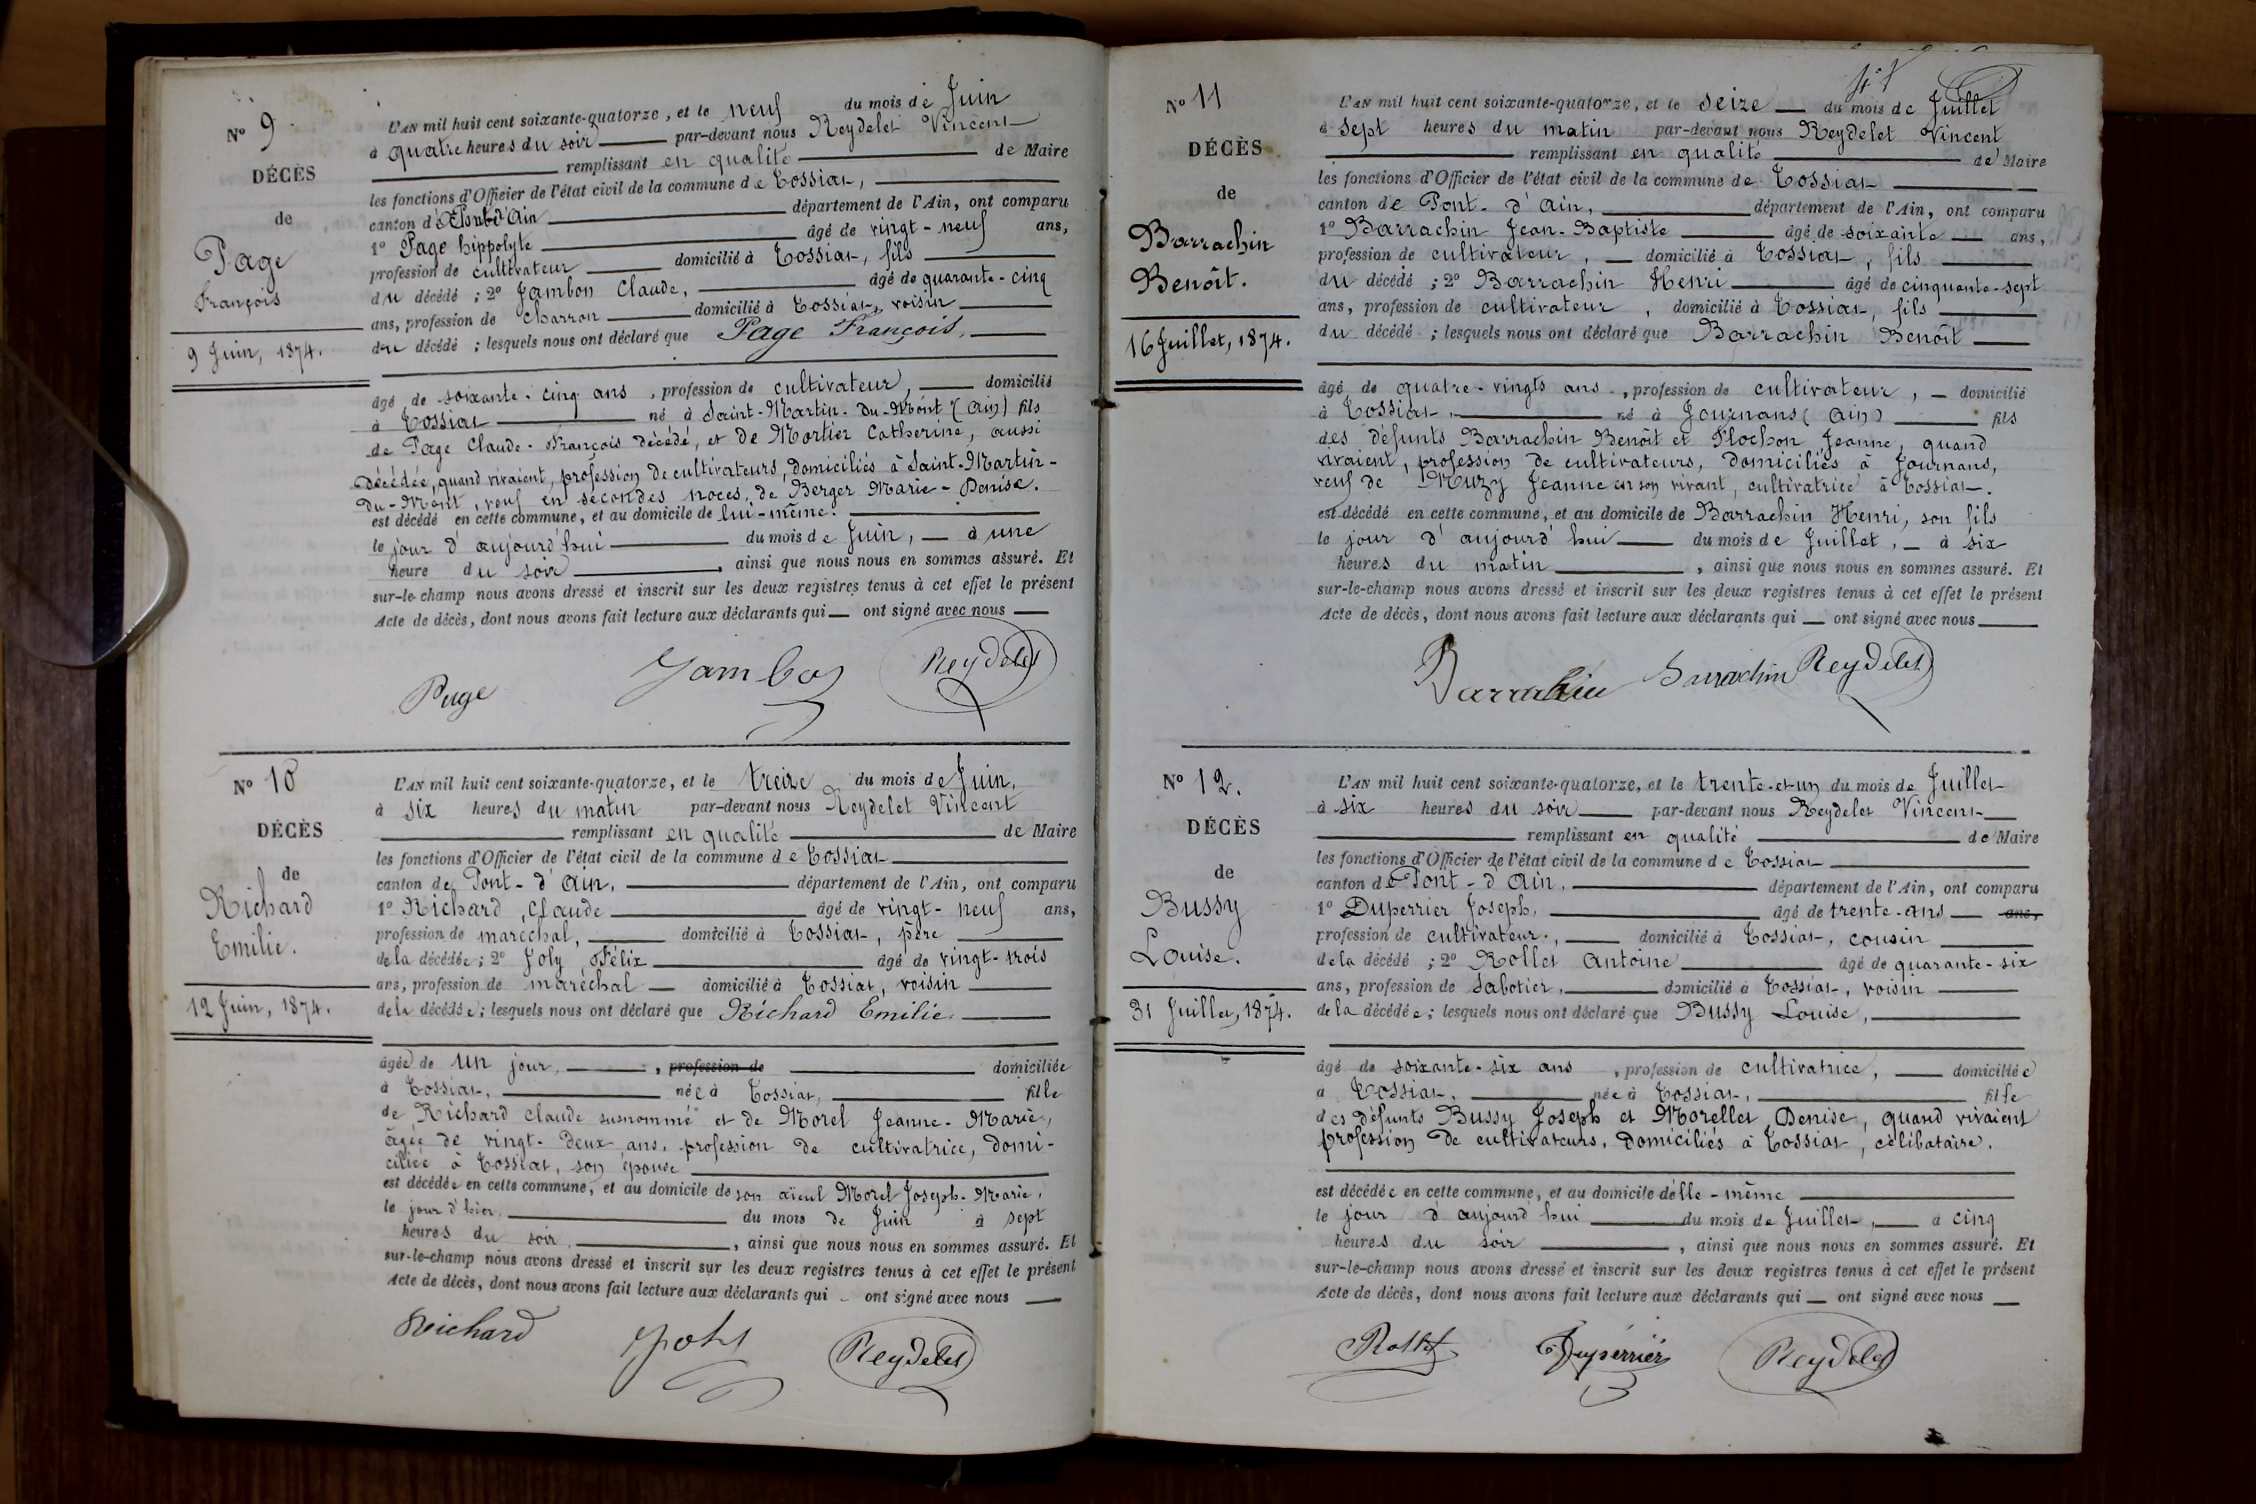 N° 9
DÉCÈS
de
Page
François
9 Juin, 1874.
L'AN mil huit cent soixante-quatorze, et le neuf du mois de Juin
à quatre heures du soir par-devant nous Reydelet Vincent
remplissant en qualité de Maire
les fonctions d'Officier de l'état civil de la commune de Tossiat,
canton de Pont d'Ain département de l'Ain, ont comparu
1° Page hippolyte âgé de vingt-neuf ans,
profession de cultivateur domicilié à Tossiat, fils
du décédé ; 2° Jambon Claude, âgé de quarante-cinq
ans, profession de charron domicilié à Tossiat, voisin
du décédé ; lesquels nous ont déclaré que Page François,
âgé de soixante-cinq ans, profession de cultivateur, domicilié
à Tossiat né à Saint-Martin-du-Mont (Ain) fils
de Page Claude-François décédé, et de Mortier Catherine, aussi
décédée, quand vivaient, profession de cultivateurs, domiciliés à Saint-Martin-
du-Mont, veuf en secondes noces, de Berger Marie-Denise.
est décédé en cette commune, et au domicile de lui-même.
le jour d'aujourd'hui du mois de Juin, à une
heure du soir, ainsi que nous nous en sommes assuré. Et
sur-le-champ nous avons dressé et inscrit sur les deux registres tenus à cet effet le présent
Acte de décès, dont nous avons fait lecture aux déclarants qui ont signé avec nous
Page Jambon Reydelet
N° 10
DÉCÈS
de
Richard
Emilie.
12 Juin, 1874.
L'AN mil huit cent soixante-quatorze, et le treize du mois de Juin,
à six heures du matin par-devant nous Reydelet Vincent
remplissant en qualité de Maire
les fonctions d'Officier de l'état civil de la commune de Tossiat
canton de Pont-d'Ain, département de l'Ain, ont comparu
1° Richard, Claude âgé de vingt-neuf ans,
profession de maréchal, domicilié à Tossiat, père
de la décédée ; 2° Joly, Félix âgé de vingt-trois
ans, profession de maréchal domicilié à Tossiat, voisin
de la décédée ; lesquels nous ont déclaré que Richard Emilie.
âgée de un jour, profession de domiciliée
à Tossiat, née à Tossiat, fille
de Richard Claude susnommé et de Morel Jeanne-Marie,
âgée de vingt-deux ans, profession de cultivatrice, domi-
ciliée à Tossiat, son épouse
est décédée en cette commune, et au domicile de son aïeul Morel Joseph-Marie,
le jour d'hier, du mois de Juin à sept
heures du soir, ainsi que nous nous en sommes assuré. Et
sur-le-champ nous avons dressé et inscrit sur les deux registres tenus à cet effet le présent
Acte de décès, dont nous avons fait lecture aux déclarants qui ont signé avec nous
Richard Joly Reydelet
N° 11
DÉCÈS
de
Barrachin
Benoît.
16 Juillet, 1874.
L'AN mil huit cent soixante-quatorze, et le seize du mois de Juillet
à sept heures du matin par-devant nous Reydelet Vincent
remplissant en qualité de Maire
les fonctions d'Officier de l'état civil de la commune de Tossiat
canton de Pont-d'Ain, département de l'Ain, ont comparu
1° Barrachin Jean-Baptiste âgé de soixante ans,
profession de cultivateur, domicilié à Tossiat, fils
du décédé ; 2° Barrachin Henri âgé de cinquante-sept
ans, profession de cultivateur, domicilié à Tossiat, fils
du décédé ; lesquels nous ont déclaré que Barrachin Benoît
âgé de quatre-vingts ans, profession de cultivateur, domicilié
à Tossiat, né à Journans (Ain) fils
des défunts Barrachin Benoît et Flochon Jeanne, quand
vivaient, profession de cultivateurs, domiciliés à Journans,
veuf de Muzy Jeanne en son vivant, cultivatrice à Tossiat.
est décédé en cette commune, et au domicile de Barrachin Henri, son fils
le jour d'aujourd'hui du mois de Juillet, à six
heures du matin, ainsi que nous nous en sommes assuré. Et
sur-le-champ nous avons dressé et inscrit sur les deux registres tenus à cet effet le présent
Acte de décès, dont nous avons fait lecture aux déclarants qui ont signé avec nous
Barrachin Barrachin Reydelet
N° 12.
DÉCÈS
de
Bussy
Louise.
31 Juillet, 1874.
L'AN mil huit cent soixante-quatorze, et le trente-et-un du mois de Juillet
à six heures du soir par-devant nous Reydelet Vincent
remplissant en qualité de Maire
les fonctions d'Officier de l'état civil de la commune de Tossiat
canton de Pont-d'Ain, département de l'Ain, ont comparu
1° Duperrier Joseph, âgé de trente-ans ans,
profession de cultivateur, domicilié à Tossiat, cousin
de la décédé ; 2° Rollet Antoine âgé de quarante-six
ans, profession de Sabotier, domicilié à Tossiat, voisin
de la décédée ; lesquels nous ont déclaré que Bussy Louise,
âgé de soixante-six ans, profession de cultivatrice, domiciliée
à Tossiat, née à Tossiat, fille
des défunts Bussy Joseph et Morellet Denise, quand vivaient
profession de cultivateurs, domiciliés à Tossiat, célibataire.
est décédée en cette commune, et au domicile d'elle-même
le jour d'aujourd'hui du mois de Juillet, à cinq
heures du soir, ainsi que nous nous en sommes assuré. Et
sur-le-champ nous avons dressé et inscrit sur les deux registres tenus à cet effet le présent
Acte de décès, dont nous avons fait lecture aux déclarants qui ont signé avec nous
Rollet Duperrier Reydelet